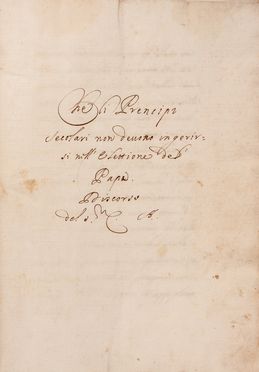 Che li Prencipi
Secolari non devono ingerir=
si nell' Elettione del
Papa.
Discorso
del s.r C. B.